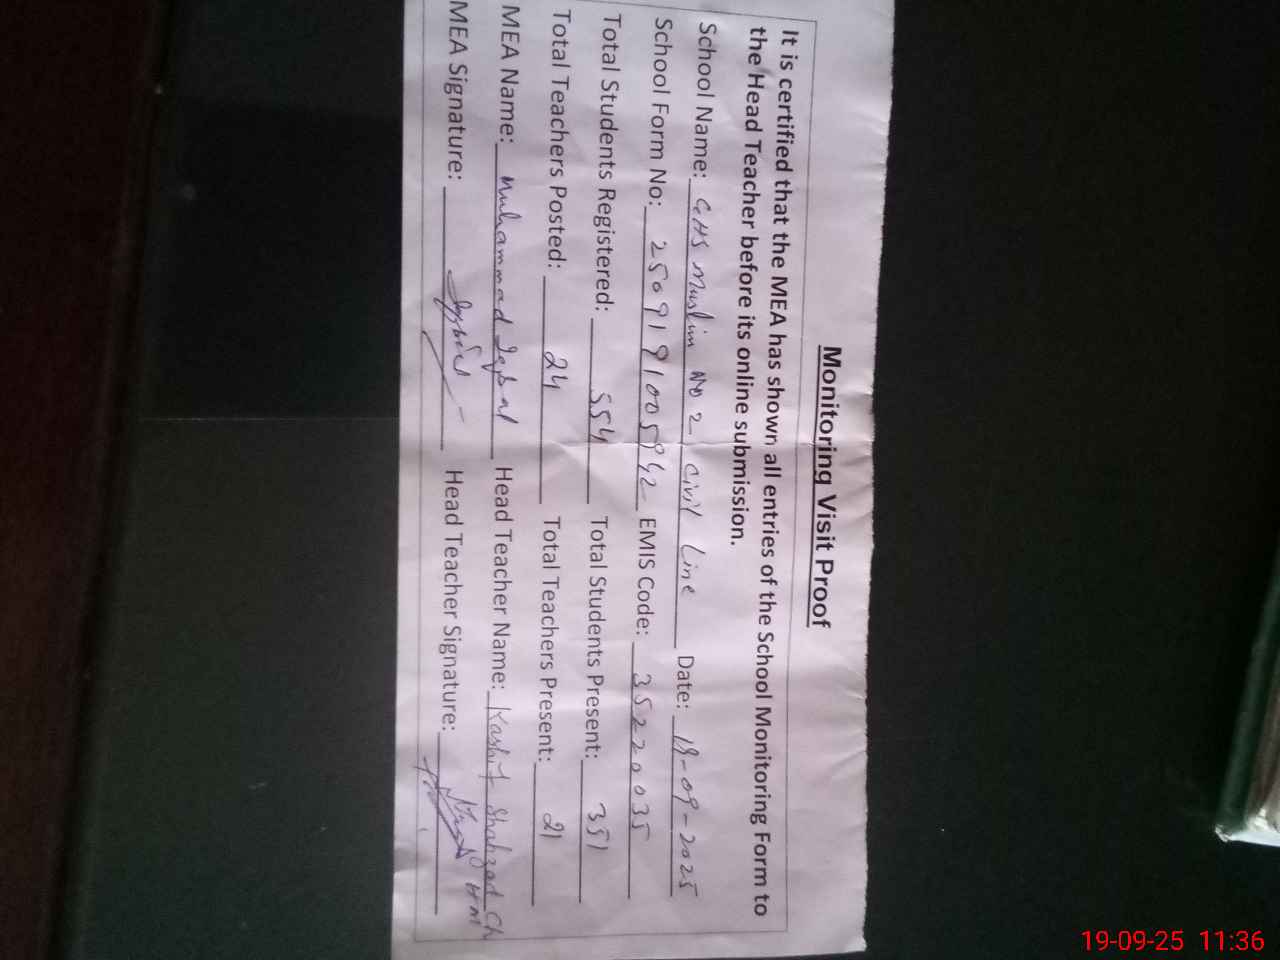 Monitoring Visit Proof
It is certified that the MEA has shown all entries of the School Monitoring Form to
the Head Teacher before its online submission.
School Name: GHS Muslim NO 2 Civil Line Date: 19-09-2025
School Form No: 2509191005942 EMIS Code: 35220035
Total Students Registered: 554 Total Students Present: 351
Total Teachers Posted: 24 Total Teachers Present: 21
MEA Name: Muhammad Iqbal Head Teacher Name: Kashif Shahzad Ch
MEA Signature: Head Teacher Signature:
19-09-25 11:36